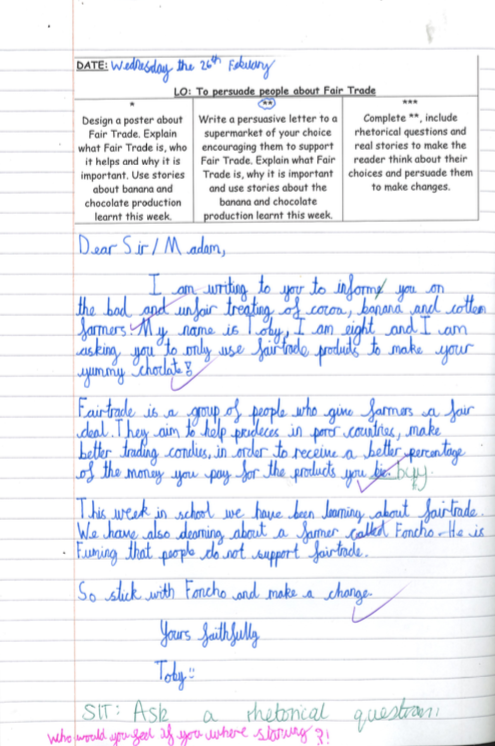 DATE: Wednesday the 26th Febuary
LO: To persuade people about Fair Trade
*
Design a poster about
Fair Trade. Explain
what Fair Trade is, who
it helps and why it is
important. Use stories
about banana and
chocolate production
learnt this week.
**
Write a persuasive letter to a
supermarket of your choice
encouraging them to support
Fair Trade. Explain what Fair
Trade is, why it is important
and use stories about the
banana and chocolate
production learnt this week.
***
Complete **, include
rhetorical questions and
real stories to make the
reader think about their
choices and persuade them
to make changes.
Dear Sir/Madam,
I am writing to you to inform you on
the bad and unfair treating of cocoa, banana and cotten
farmers. My name is Toby, I am eight and I am
asking you to only use fairtrade products to make your
yummy choclate!
Fairtrade is a group of people who give farmers a fair
deal. They aim to help prodeces in poor countries, make
better trading condies, in order to receive a better percentage
of the money you pay for the products you buy.
This week in school we have been learning about fairtrade.
We have also dearning about a farmer called Foncho. He is
Fuming that people do not support fairtrade.
So stick with Foncho and make a change.
Yours faithfully
Toby
SIT: Ask a rhetorical question!
Who would you feel if you where starving?!